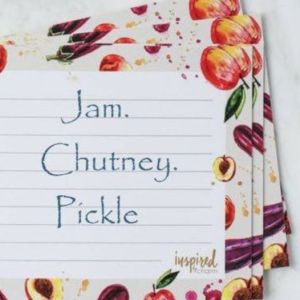 Jam.
Chutney.
Pickle
inspired
charm